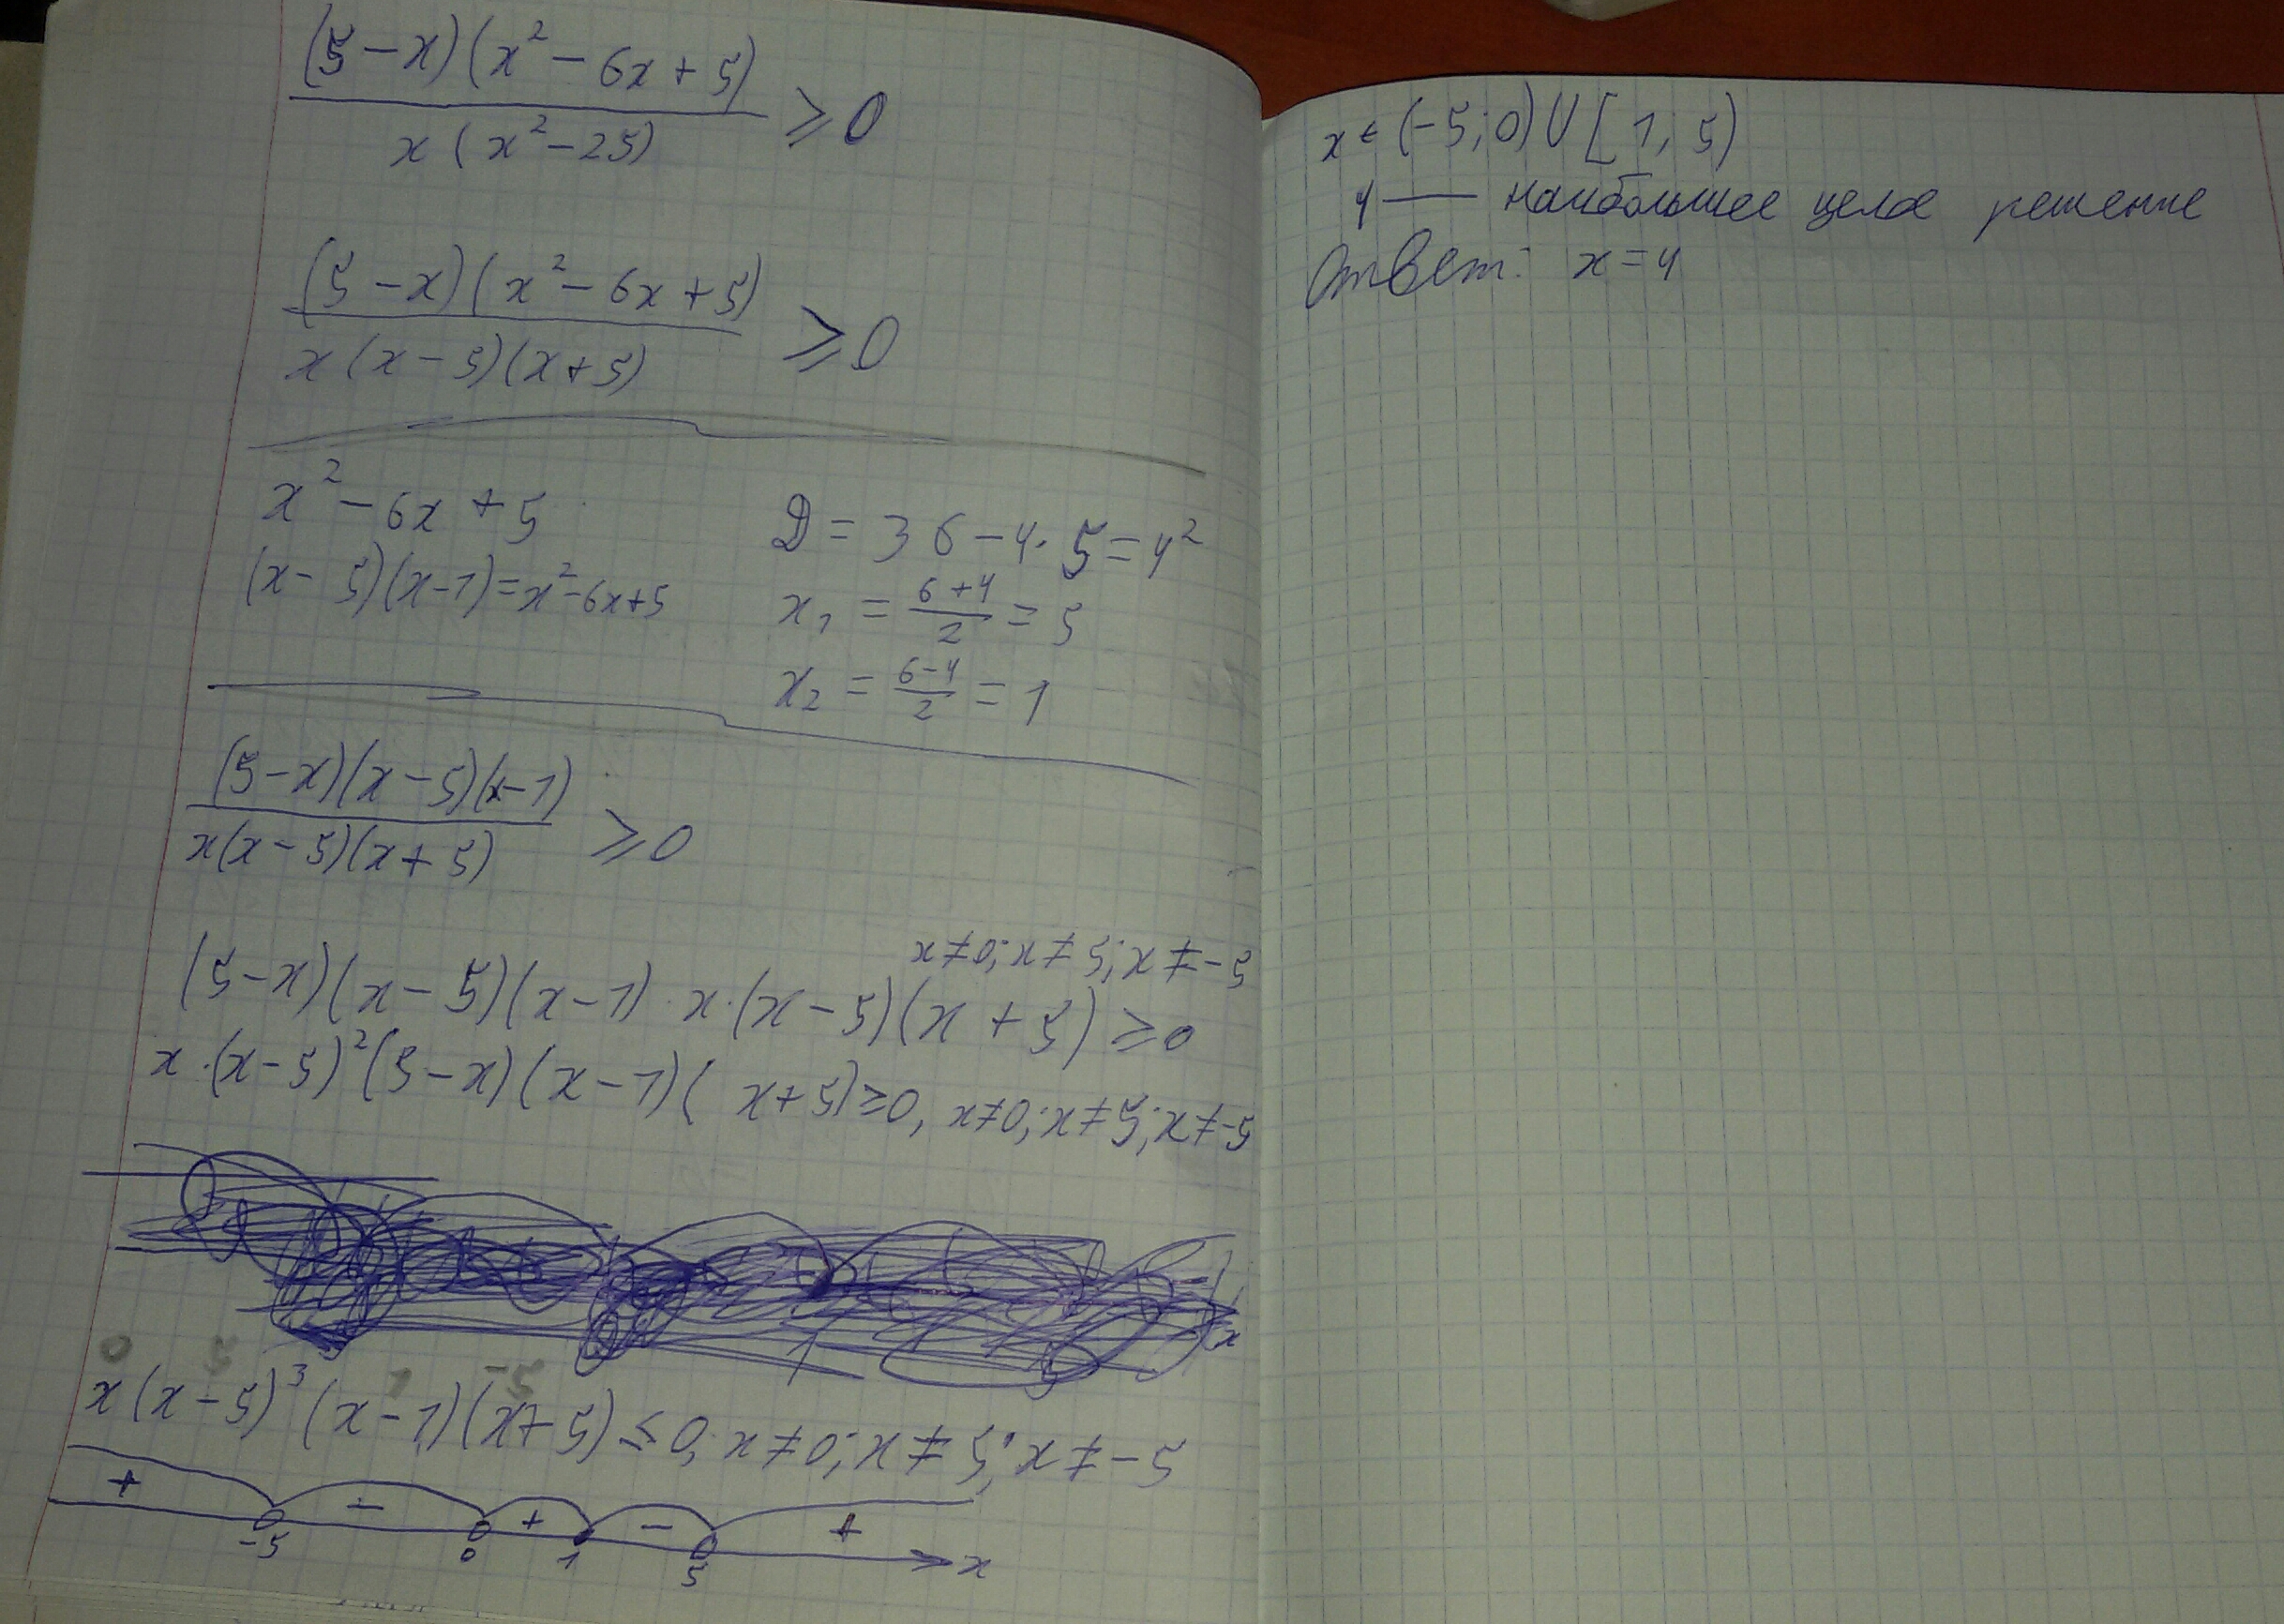 (5-x)(x²-6x+5)
x(x²-25)
≥0
(5-x)(x²-6x+5)
x(x-5)(x+5)
≥0
x²-6x+5
(x-5)(x-1)=x²-6x+5
D=36-4·5=4²
x₁=(6+4)/2=5
x₂=(6-4)/2=1
(5-x)(x-5)(x-1)
x(x-5)(x+5)
≥0
x≠0;x≠5;x≠-5
(5-x)(x-5)(x-1)·x·(x-5)(x+5)≥0
x·(x-5)²(5-x)(x-1)(x+5)≥0, x≠0;x≠5;x≠-5
x
0 5 1 -5
x(x-5)³(x-1)(x+5)≤0; x≠0;x≠5;x≠-5
+ - + - +
-5 0 1 5 x
x∈(-5;0)∪[1;5)
4 — наибольшее целое решение
Ответ: x=4